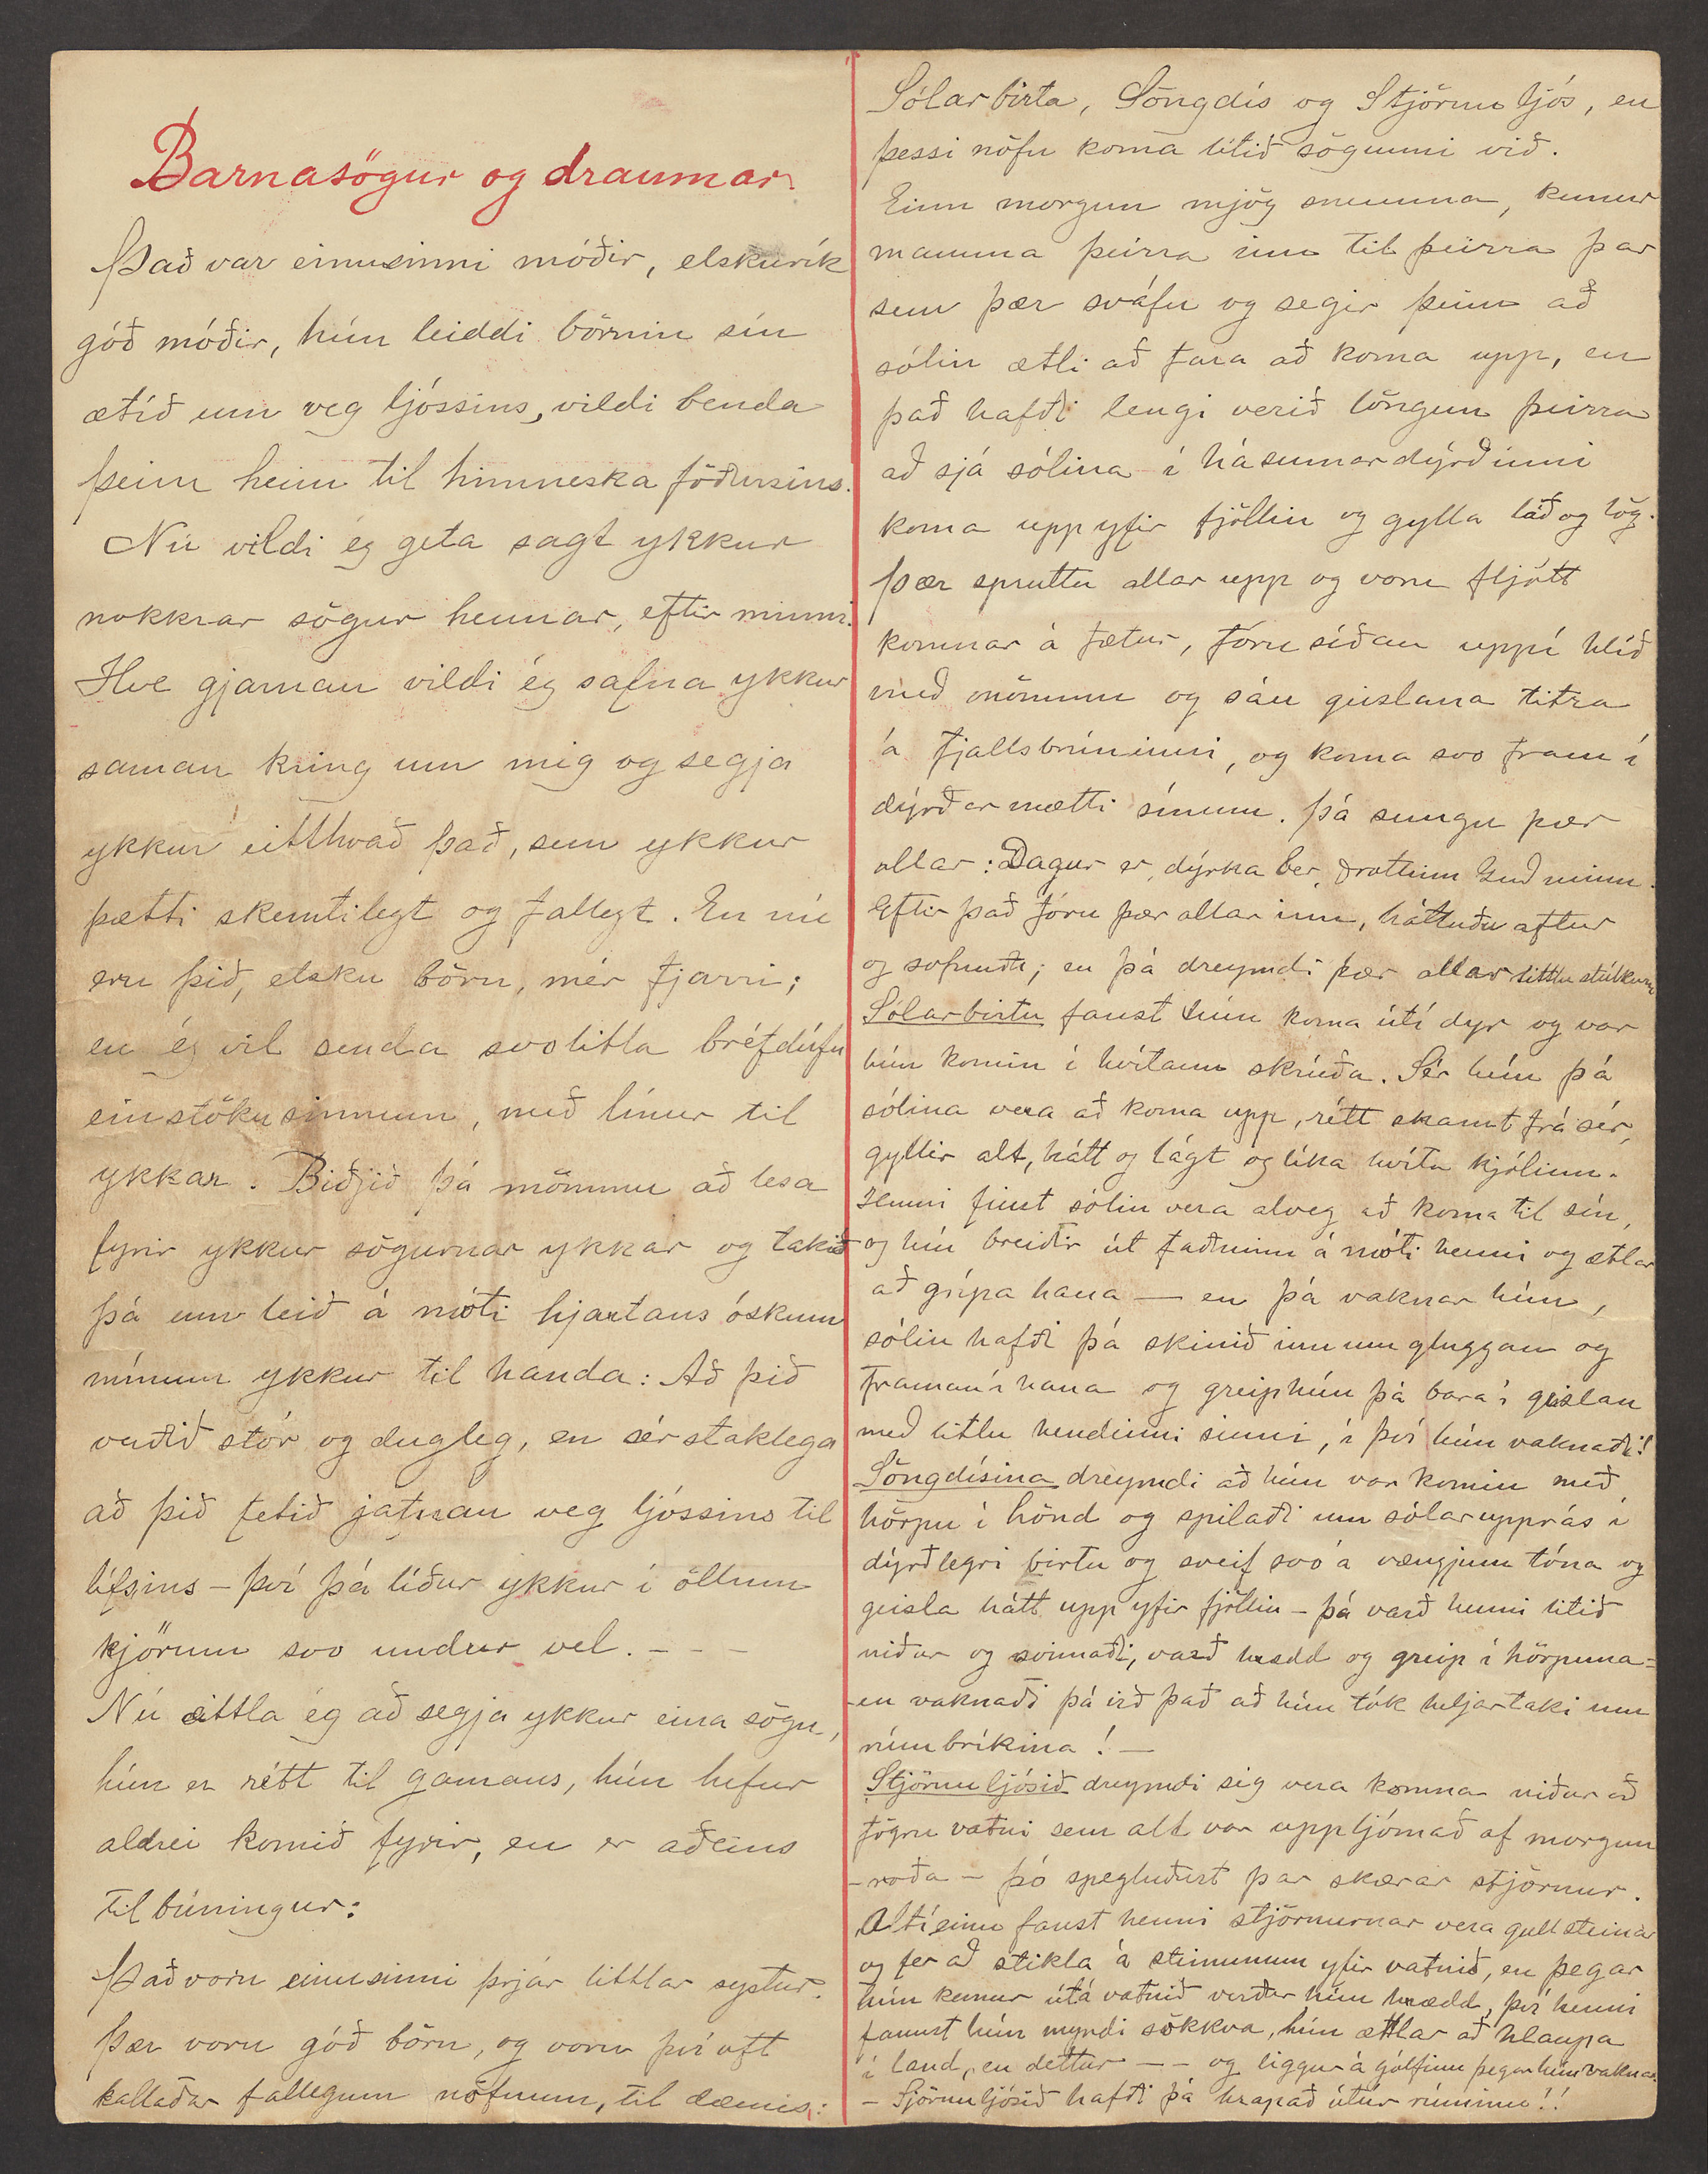 Barnasögur og draumar
Það var einusinni móðir, elskurík
góð móðir, hún leiddi börnin sín
ætíð um veg ljóssins, vildi benda
þeim heim til himneska föðursins.
Nú vildi ég geta sagt ykkur
nokkrar sögur hennar, eftir minni.
Hve gjarnan vildi ég safna ykkur
saman kring um mig og segja
ykkur eitthvað það, sem ykkur
þætti skemtilegt og fallegt. En nú
eru þið, elsku börn, mér fjarri;
en ég vil senda svolitla bréfdúfu
einstökusinnum, með línur til
ykkar. Biðjið þá mömmu að lesa
fyrir ykkur sögurnar ykkar og takið
þá um leið á móti hjartans óskum
mínum ykkur til handa: Að þið
verðið stór og dugleg, en sérstaklega
að þið fetið jafnan veg ljóssins til
lífsins - því þá líður ykkur í öllum
kjörum svo undur vel. - - -
Nú ættla ég að segja ykkur eina sögu,
hún er rétt til gamans, hún hefur
aldrei komið fyrir, en er aðeins
tilbúningur:
Það voru einusinni þrjár littlar systur.
Þær voru góð börn, og voru því oft
kallaðar fallegum nöfnum, til dæmis:
Sólarbirta, Söngdís og Stjörnuljós, en
þessi nöfn koma lítið sögunni við.
Einn morgun mjög snemma, kemur
mamma þeirra inn til þeirra þar
sem þær sváfu og segir þeim að
sólin ætli að fara að koma upp, en
það hafði lengi verið löngun þeirra
að sjá sólina í hásumardýrðinni
koma upp yfir fjöllin og gylla láð og lög.
Þær spruttu allar upp og voru fljótt
komnar á fætur, fóru síðan uppí hlíð
með mömmu og sáu geislana titra
á fjallsbrúninni, og koma svo fram í
dýrðarmætti sínum. Þá sungu þær
allar: Dagur er, dýrka ber, Drottinn Guð minn.
Eftir það fóru þær allar inn, háttuðu aftur
og sofnuðu; en þá dreymdi þær allar littlu stúlkurn
Sólarbirtu fanst hún koma útí dyr og var
hún komin í hvítann skrúða. Sér hún þá
sólina vera að koma upp, rétt skamt frá sér,
gyllir alt, hátt og lágt og líka hvíta kjólinn.
Henni finst sólin vera alveg að koma til sín,
og hún breiðir út faðminn á móti henni og ætlar
að grípa hana — en þá vaknar hún,
sólin hafði þá skinið inn um gluggan og
framaní hana og greip hún þá bara í geislan
með litlu hendinni sinni, í því hún vaknaði!
Söngdísina dreymdi að hún var komin með
hörpu í hönd og spilaði um sólarupprás í
dýrðlegri birtu og sveif svo á vængjum tóna og
geisla hátt upp yfir fjöllin - þá varð henni litið
niður og svimaði, varð hrædd og greip í hörpuna =
en vaknaði þá við það að hún tók heljartaki um
rúmbríkina! —
Stjörnuljósið dreymdi sig vera komna niður að
fögru vatni sem alt var uppljómað af morgun
-roða - þó spegluðust þar skærar stjörnur.
Altíeinu fanst henni stjörnurnar vera gullsteinar
og fer að stikla á steinunum yfir vatnið, en þegar
hún kemur útá vatnið verður hún hrædd, því henni
fannst hún myndi sökkva, hún ættlar að hlaupa
í land, en dettur - - og liggur á gólfinu þegar hún vaknar.
- Sjörnuljósið hafði þá hrapað útúr rúminu!!